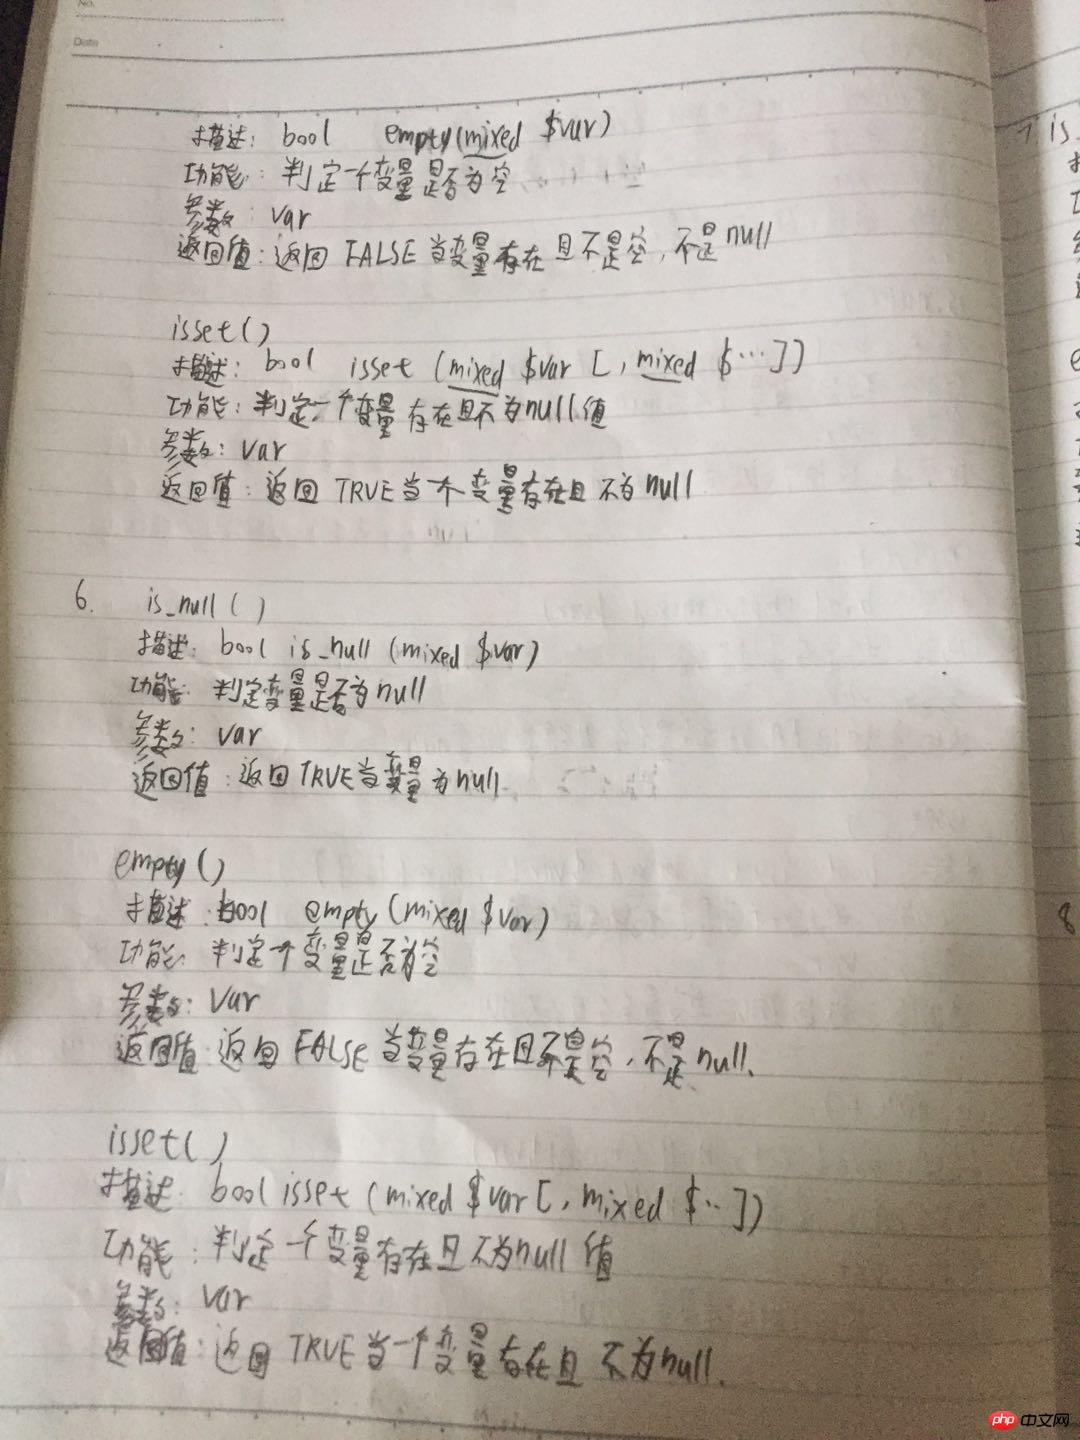 No.
Date
描述: bool empty(mixed $var)
功能: 判定一个变量是否为空
参数: var
返回值: 返回 FALSE 当变量存在且不是空, 不是null
isset()
描述: bool isset (mixed $var [, mixed $…])
功能: 判定一个变量存在且不为null值
参数: var
返回值: 返回 TRUE当个变量存在且不为null
6. is_null()
描述: bool is_null (mixed $var)
功能: 判定变量是否为null
参数: var
返回值: 返回TRUE当变量为null.
empty()
描述: bool empty(mixed $var)
功能: 判定个变量是否为空
参数: var
返回值: 返回 FALSE 当变量存在且不是空, 不是null.
isset()
描述: bool isset (mixed $var [, mixed $…])
功能: 判定一个变量存在且不为null值
参数: var
返回值: 返回 TRUE当一个变量存在且不为null.
7 is_
8
php 中文网